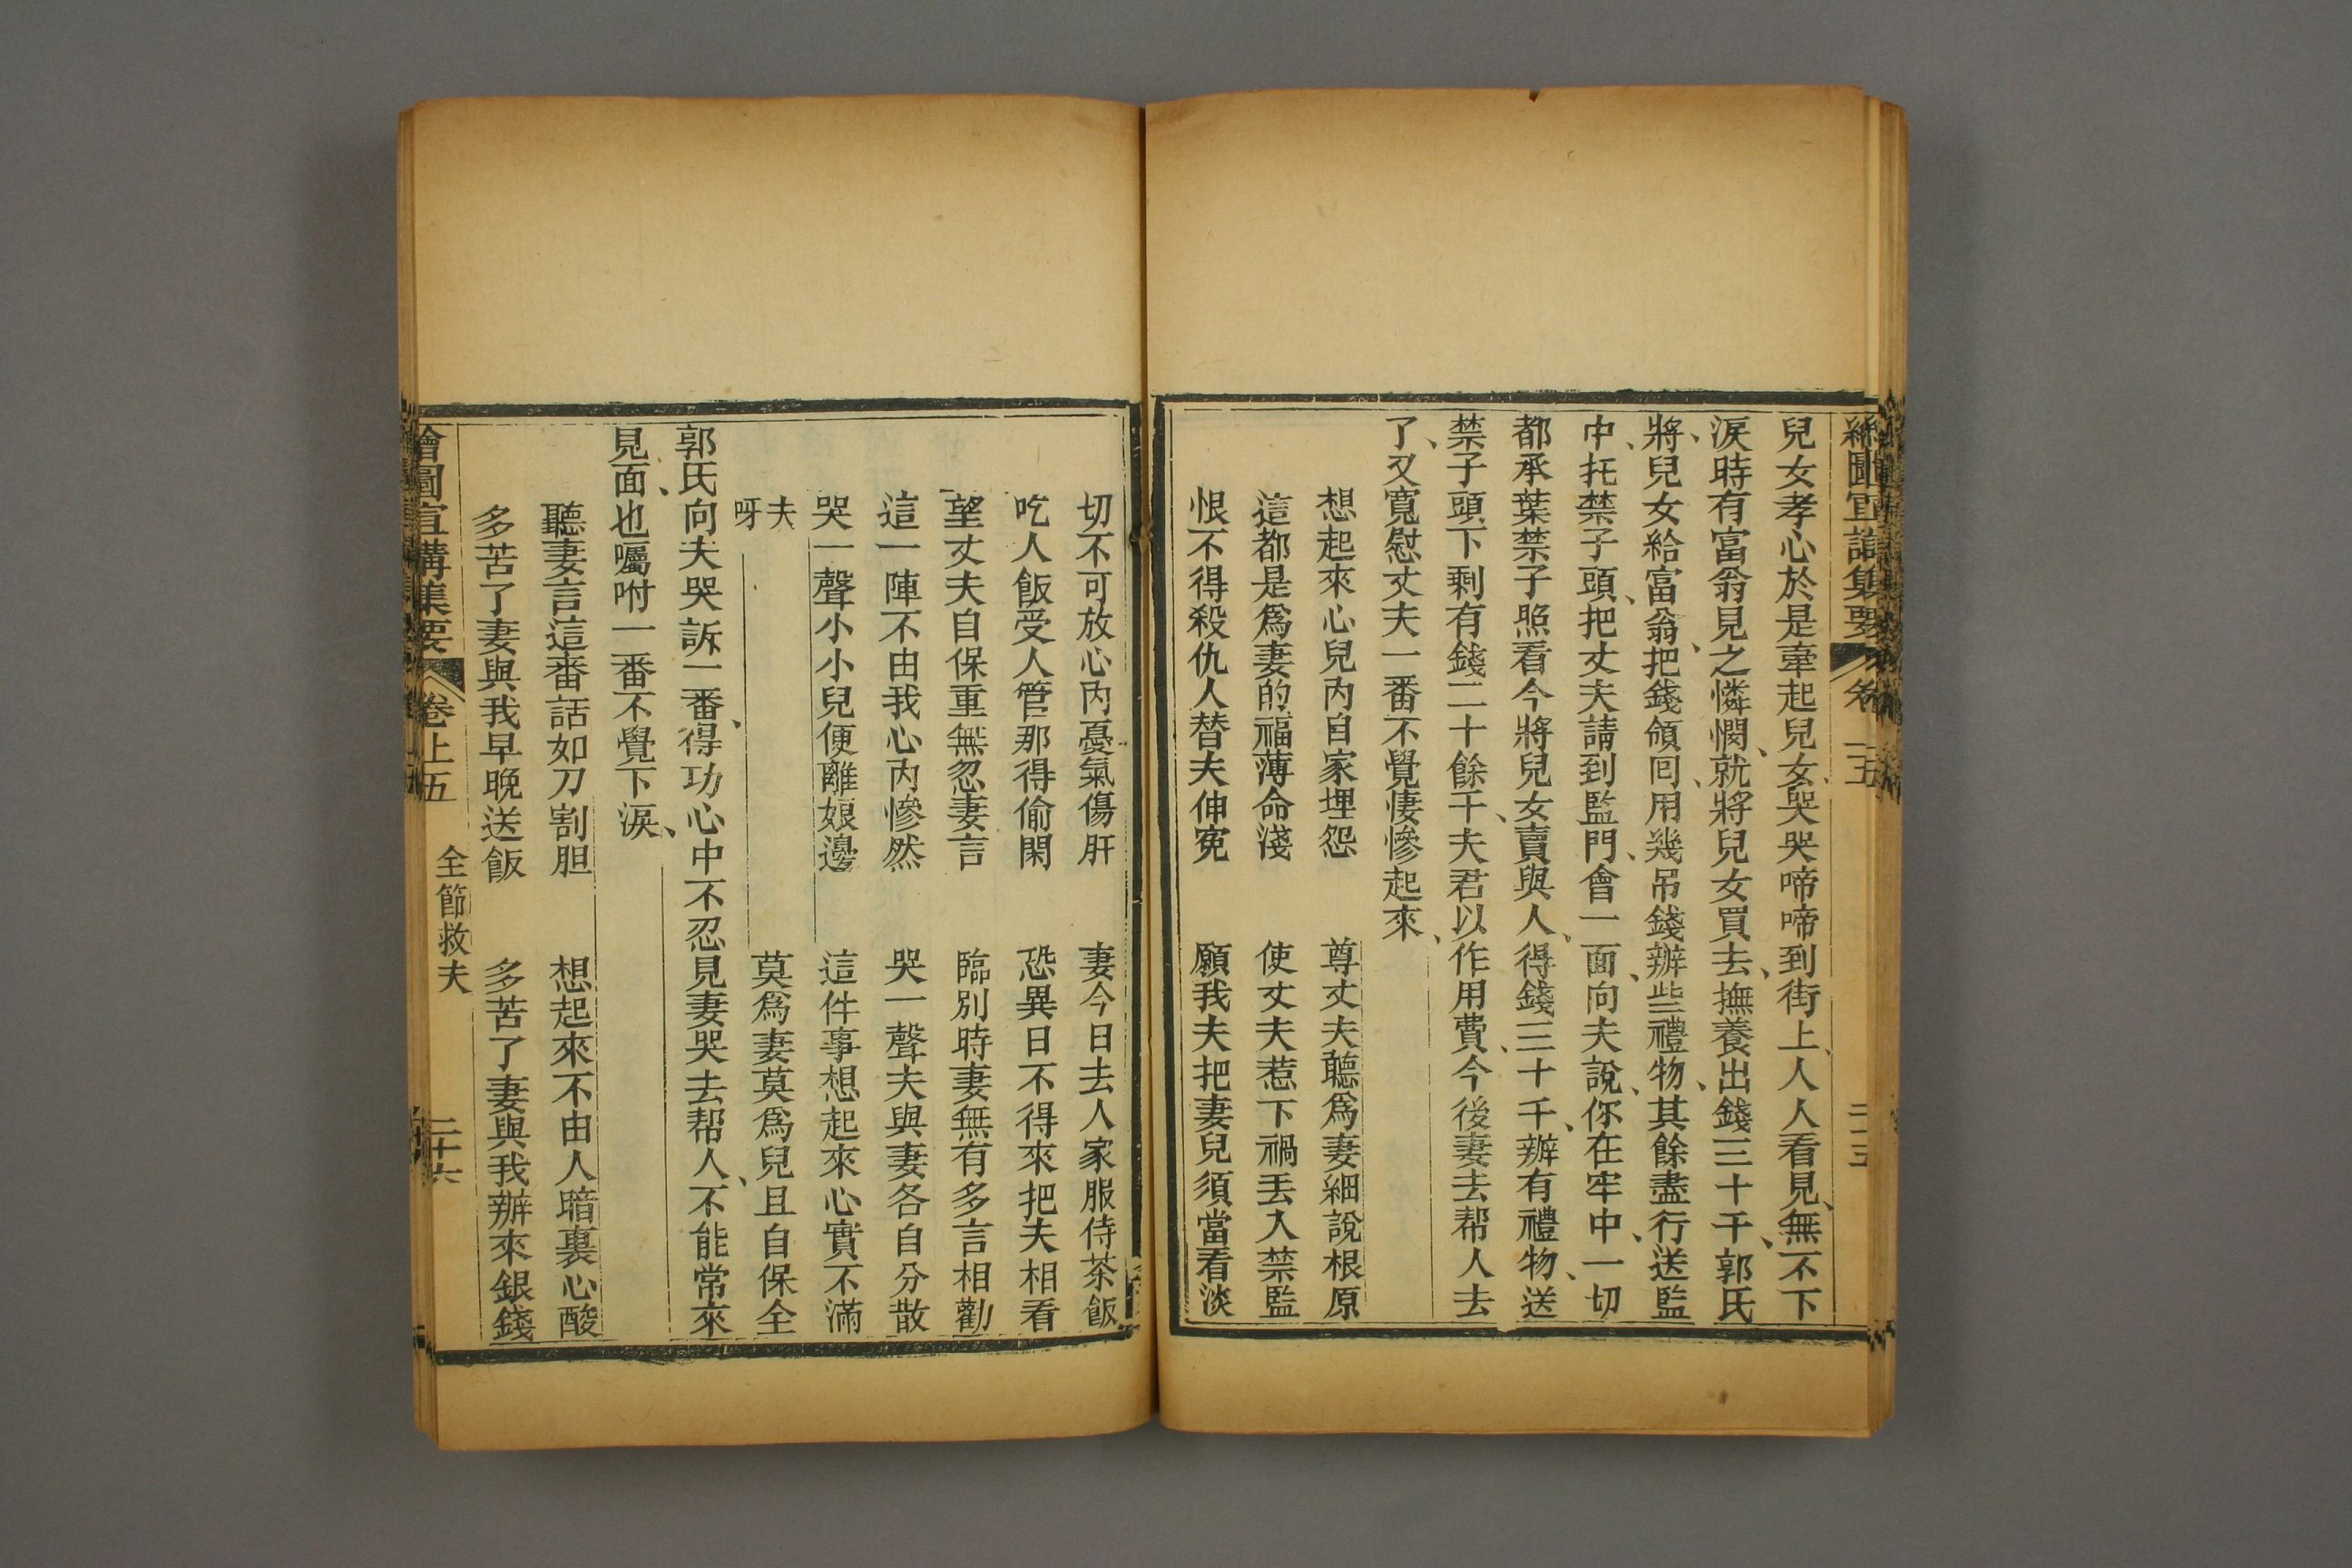 兒女孝心於是牽起兒女、哭哭啼啼到街上、人人看見、無不下
淚時有富翁見之憐憫、就將兒女買去、撫養出錢三十千、郭氏
將、兒女給富翁、把錢領回、用幾吊錢辦些禮物、其餘盡行送監
中、托禁子頭、把丈夫請到監門、會一面、向夫說、你在牢中、一切
都承葉禁子照看今將兒女賣與人、得錢三十千、辦有禮物、送
禁子頭下剩有錢二十餘千、夫君以作用費、今後妻去帮人去
了、又寬慰丈夫一番不覺悽慘起來、
想起來心兒內自家埋怨　尊丈夫聽爲妻細說根原
這都是爲妻的福薄命淺　使丈夫惹下禍丟入禁監
恨不得殺仇人替夫伸寃　願我夫把妻兒須當看淡
切不可放心內憂氣傷肝　妻今日去人家服侍茶飯
吃人飯受人管那得偷閑　恐異日不得來把夫相看
望丈夫自保重無忽妻言　臨別時妻無有多言相勸
這一陣不由我心內慘然　哭一聲夫與妻各自分散
哭一聲小小兒便離娘邊　這件事想起來心實不滿
夫呀　莫爲妻莫爲兒且自保全
郭氏向夫哭訴一番、得功心中不忍見妻哭去帮人、不能常來
見面、也囑咐一番不覺下淚、
聽妻言這畨話如刀割胆　想起來不由人暗裏心酸
多苦了妻與我早晚送飯　多苦了妻與我辦來銀錢
繪圖宣講集要　卷上五　全節救夫　二十六